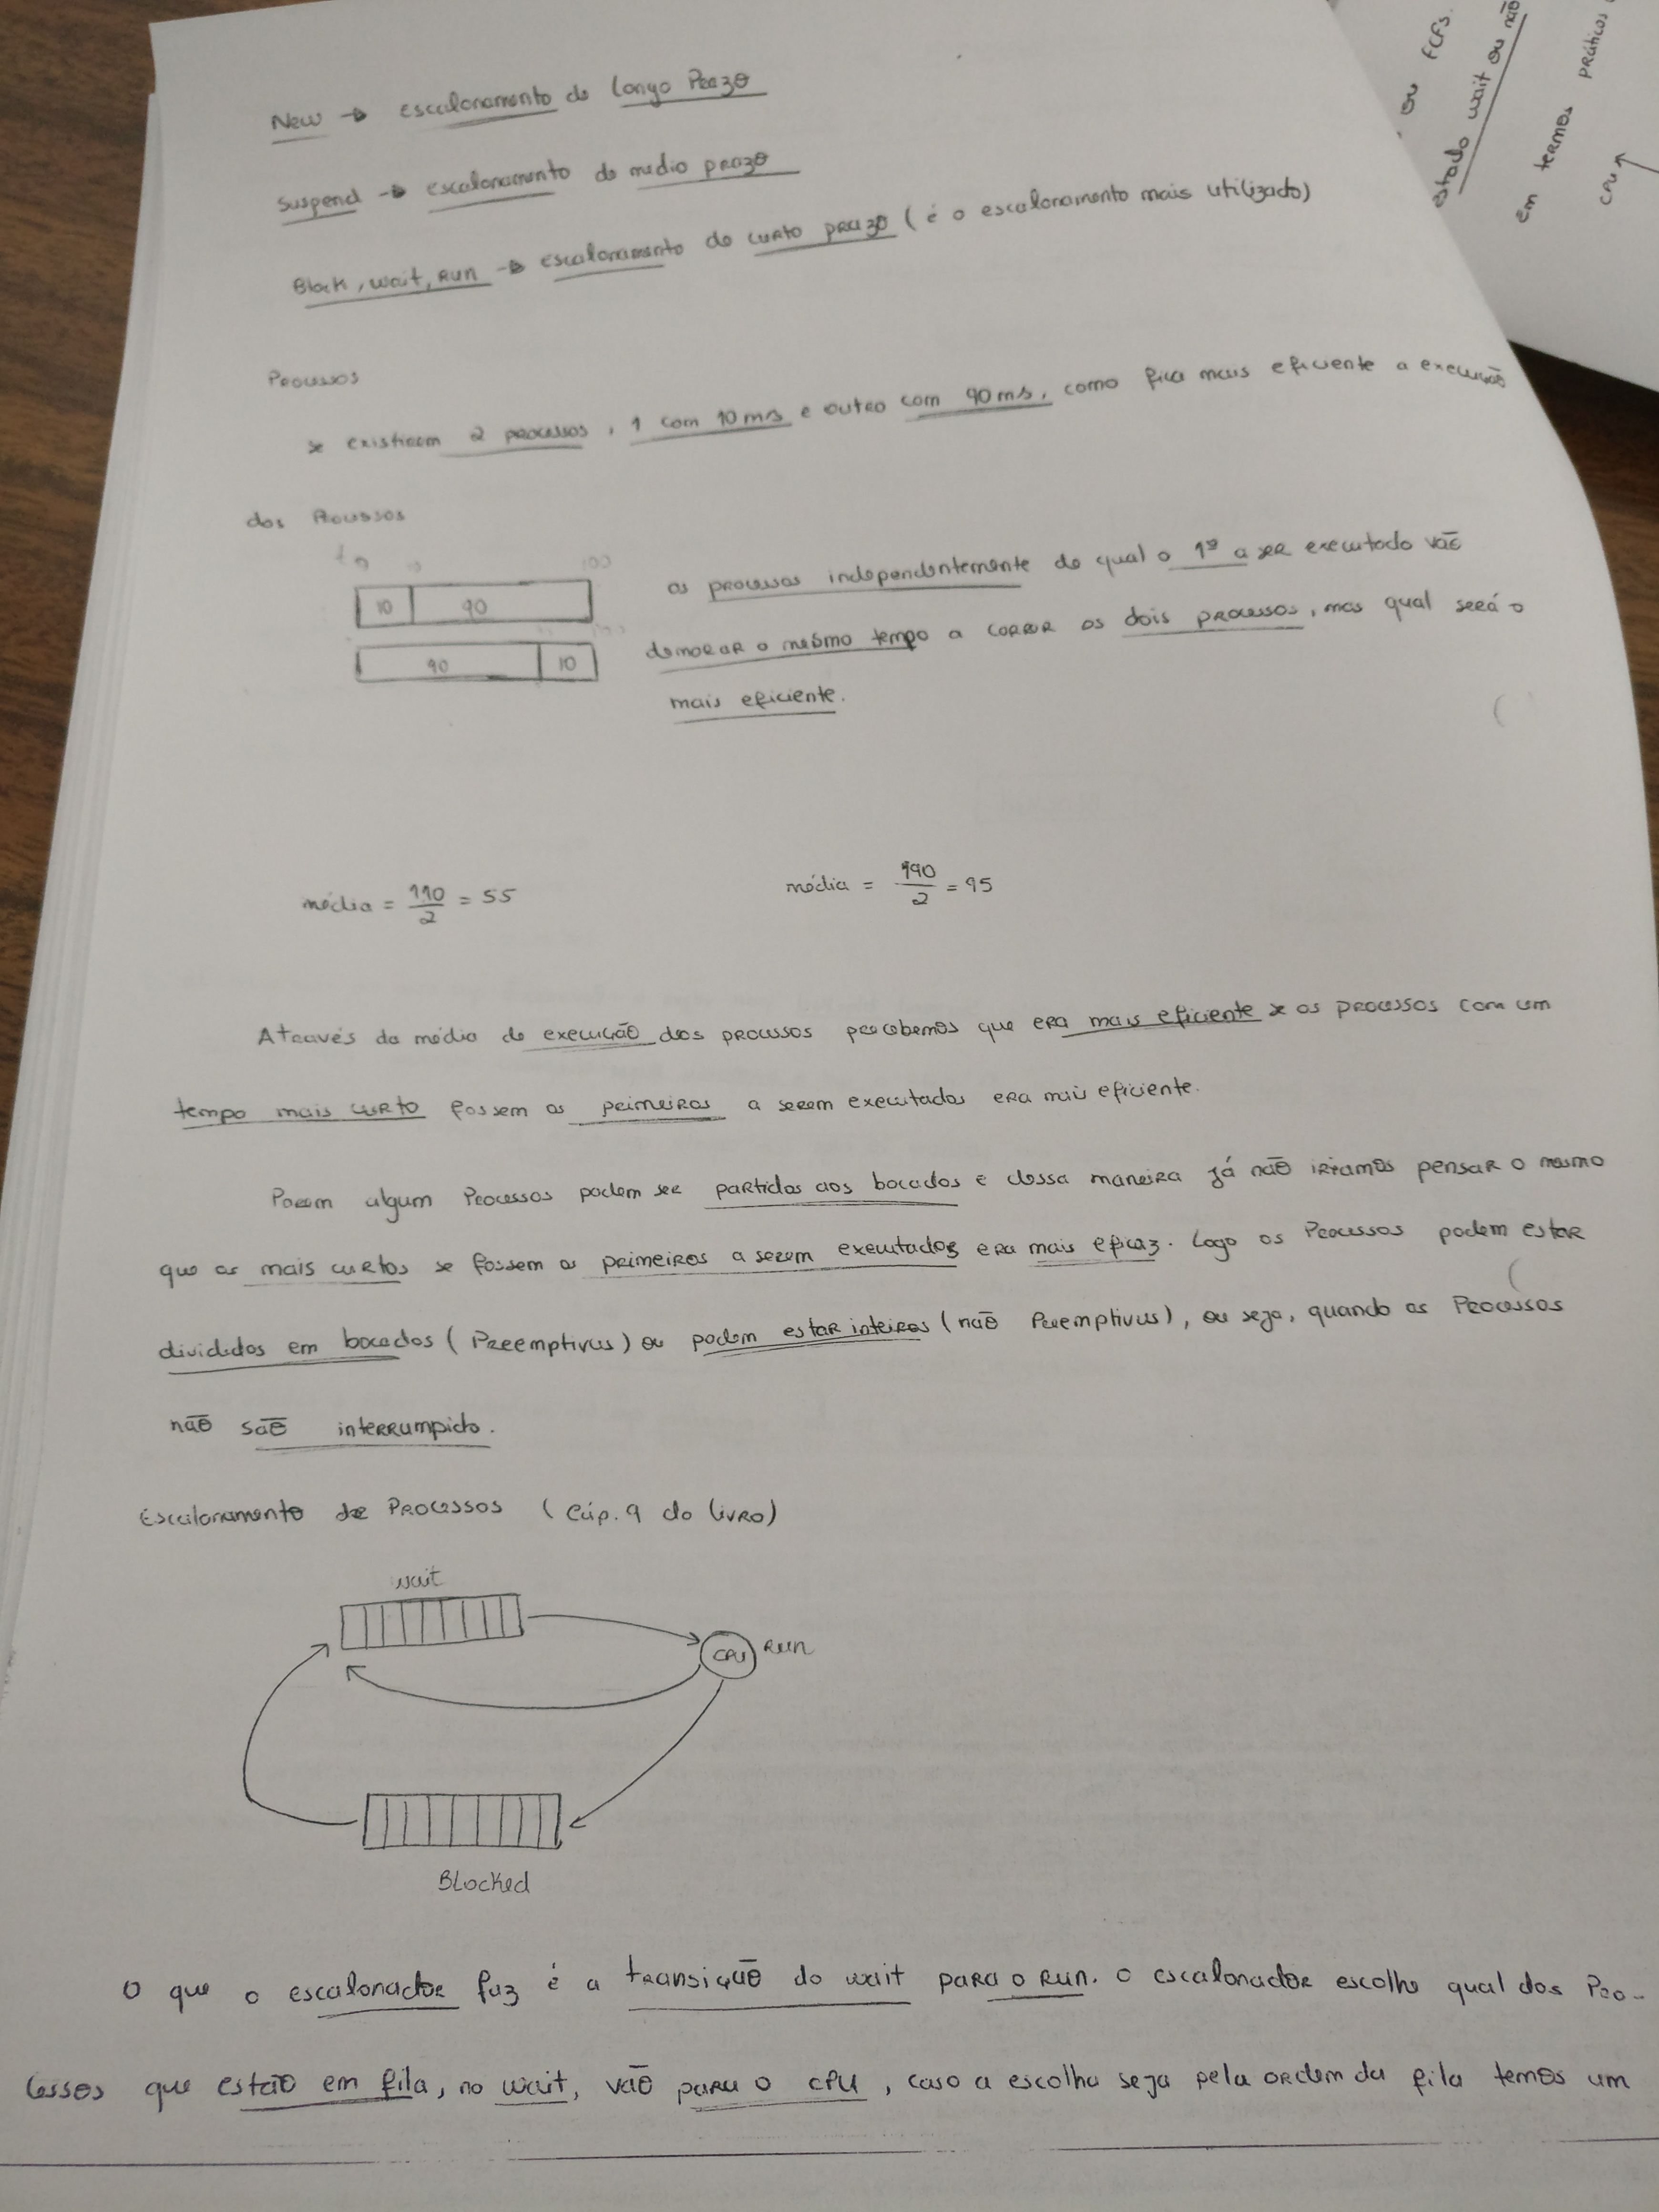 New → escalonamento de longo Prazo
Suspend → escalonamento de medio prazo
Block, wait, Run → escalonamento de curto prazo (é o escalonamento mais utilizado)
Processos
se existirem 2 processos, 1 com 10 ms e outro com 90 ms, como fica mais eficiente a execução
dos Processos
0 10 100
10 90
90 10
os processos independentemente de qual o 1º a ser executado vão
demorar o mesmo tempo a correr os dois processos, mas qual será o
mais eficiente.
média = 110/2 = 55
média = 190/2 = 95
Através da média de execução dos processos percebemos que era mais eficiente se os processos com um
tempo mais curto fossem os primeiros a serem executados era mais eficiente.
Porem algum Processos podem ser partidos aos bocados e dessa maneira já não iriamos pensar o mesmo
que os mais curtos se fossem os primeiros a serem executados era mais eficaz. Logo os Processos podem estar
divididos em bocados (Preemptivus) ou podem estar inteiros (não Preemptivus), ou seja, quando os Processos
não são interrumpido.
Escalonamento de Processos (Cáp. 9 do livro)
wait
CPU Run
Blocked
O que o escalonador faz é a transição do wait para o Run. O escalonador escolhe qual dos Pro-
cessos que estão em fila, no wait, vão para o CPU, caso a escolha seja pela ordem da fila temos um
ou FCFS.
estado wait ou não
Em termos práticos
CPU↑